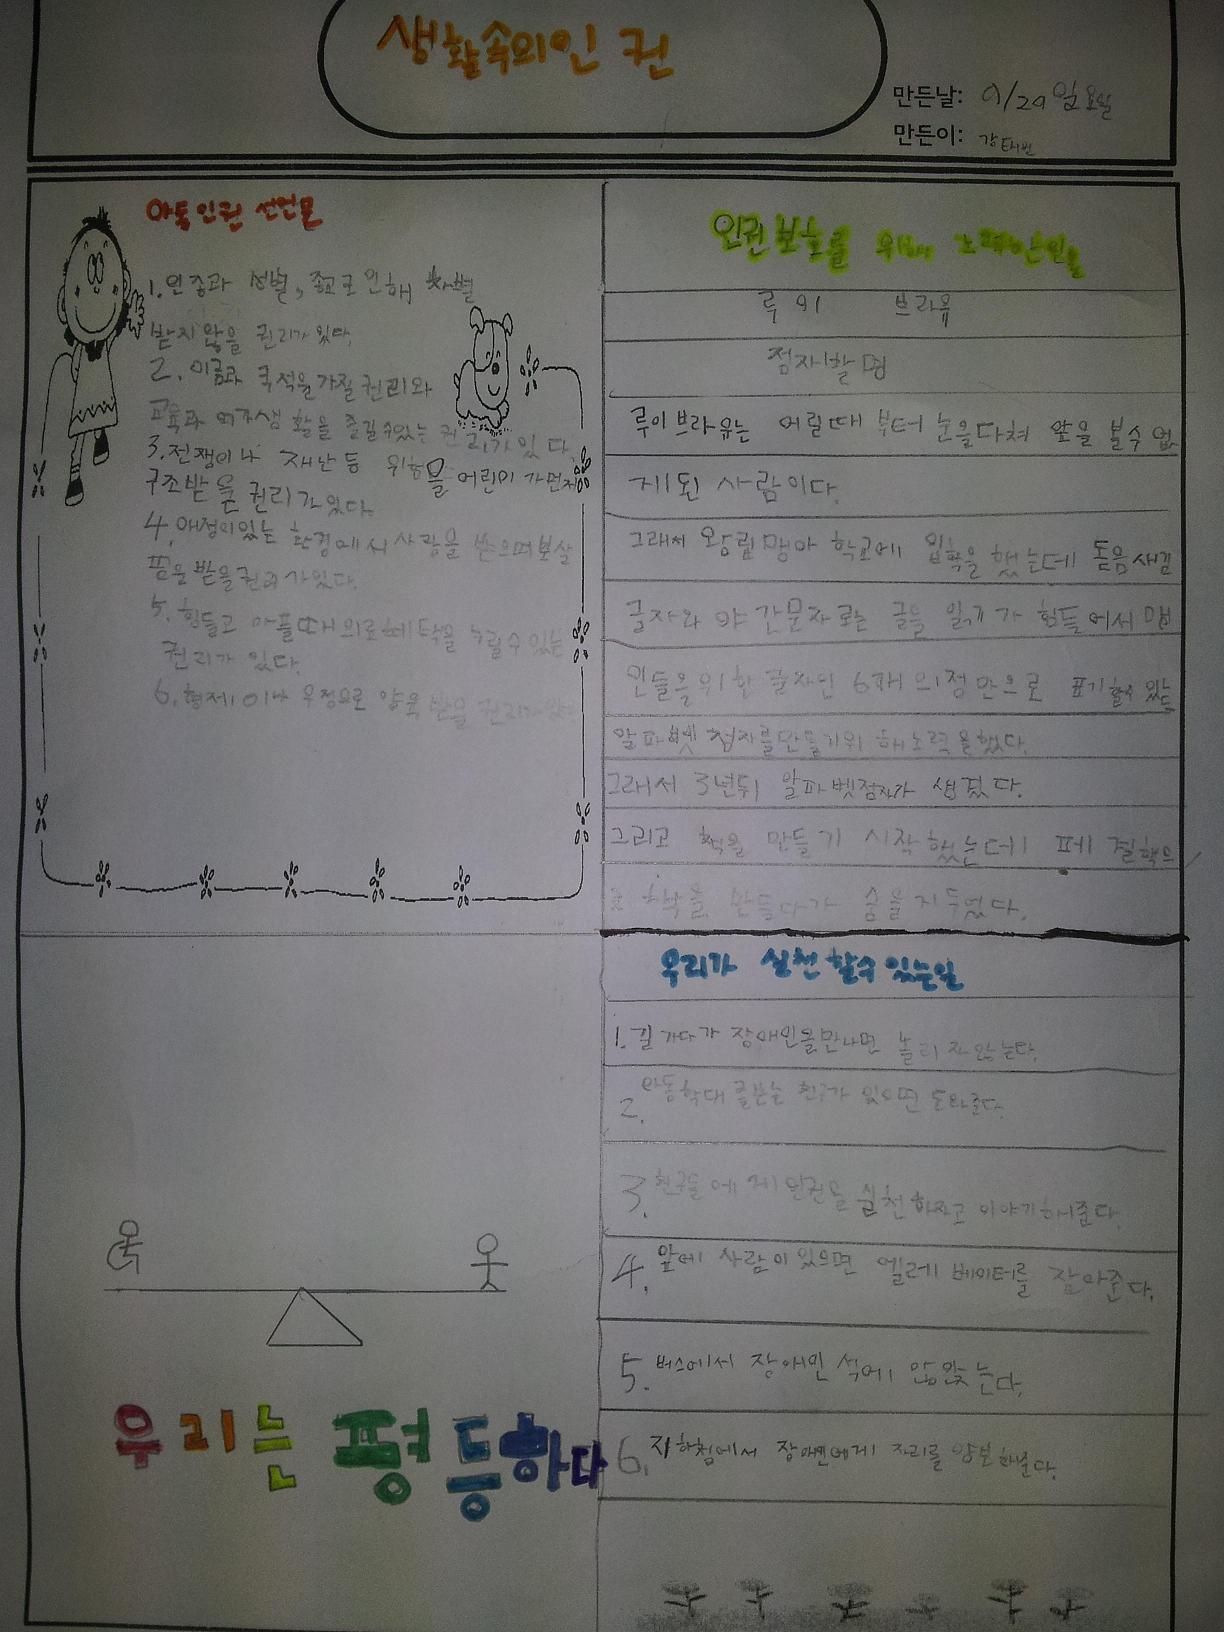 생활속의인권
만든날: 9/29일요일
만든이: 강태빈
아동인권 선언문
1. 인종과 성별, 종교로 인해 차별
받지 않을 권리가 있다.
2. 이름과 국적을 가질 권리와
교육과 여가생활을 즐길수있는 권리가 있다.
3. 전쟁이나 재난 등 위험을 어린이가먼저
구조받을 권리가있다.
4. 애정이있는 환경에서 사랑을 받으며보살
핌을 받을권리가있다.
5. 힘들고 아플때 의료혜택을 누릴수 있는
권리가 있다.
6. 형제애나 우정으로 양육 받을 권리가
인권보호를 위해 노력한인물
루이 브라유
점자발명
루이브라유는 어릴때 부터 눈을다쳐 앞을 볼수 없
게된 사람이다.
그래서 왕립맹아 학교에 입학을 했는데 돋음새김
글자와 야간문자로는 글을 읽귀가 힘들어서 맹
인들을위한 글자인 6개의점만으로 표기할수 있는
알파벳 점자를만들기위해노력을했다.
그래서 3년뒤 알파벳점자가 생겼다.
그리고 책을 만들기 시작했는데 페결핵으
로 책을 만들다가 숨을거두었다.
우리가 실천할수있는일
1. 길가다가 장애인을만나면 놀리지않는다.
2. 아동학대 받는 친구가 있으면 도와준다.
3. 친구들에게 인권을 실천하자고 이야기해준다.
4. 앞에 사람이있으면 엘레베이터를 잡아준다.
5. 버스에서 장애인석에 않앉는다.
6. 지하철에서 장애인에게 자리를 양보해준다.
우리는 평등하다